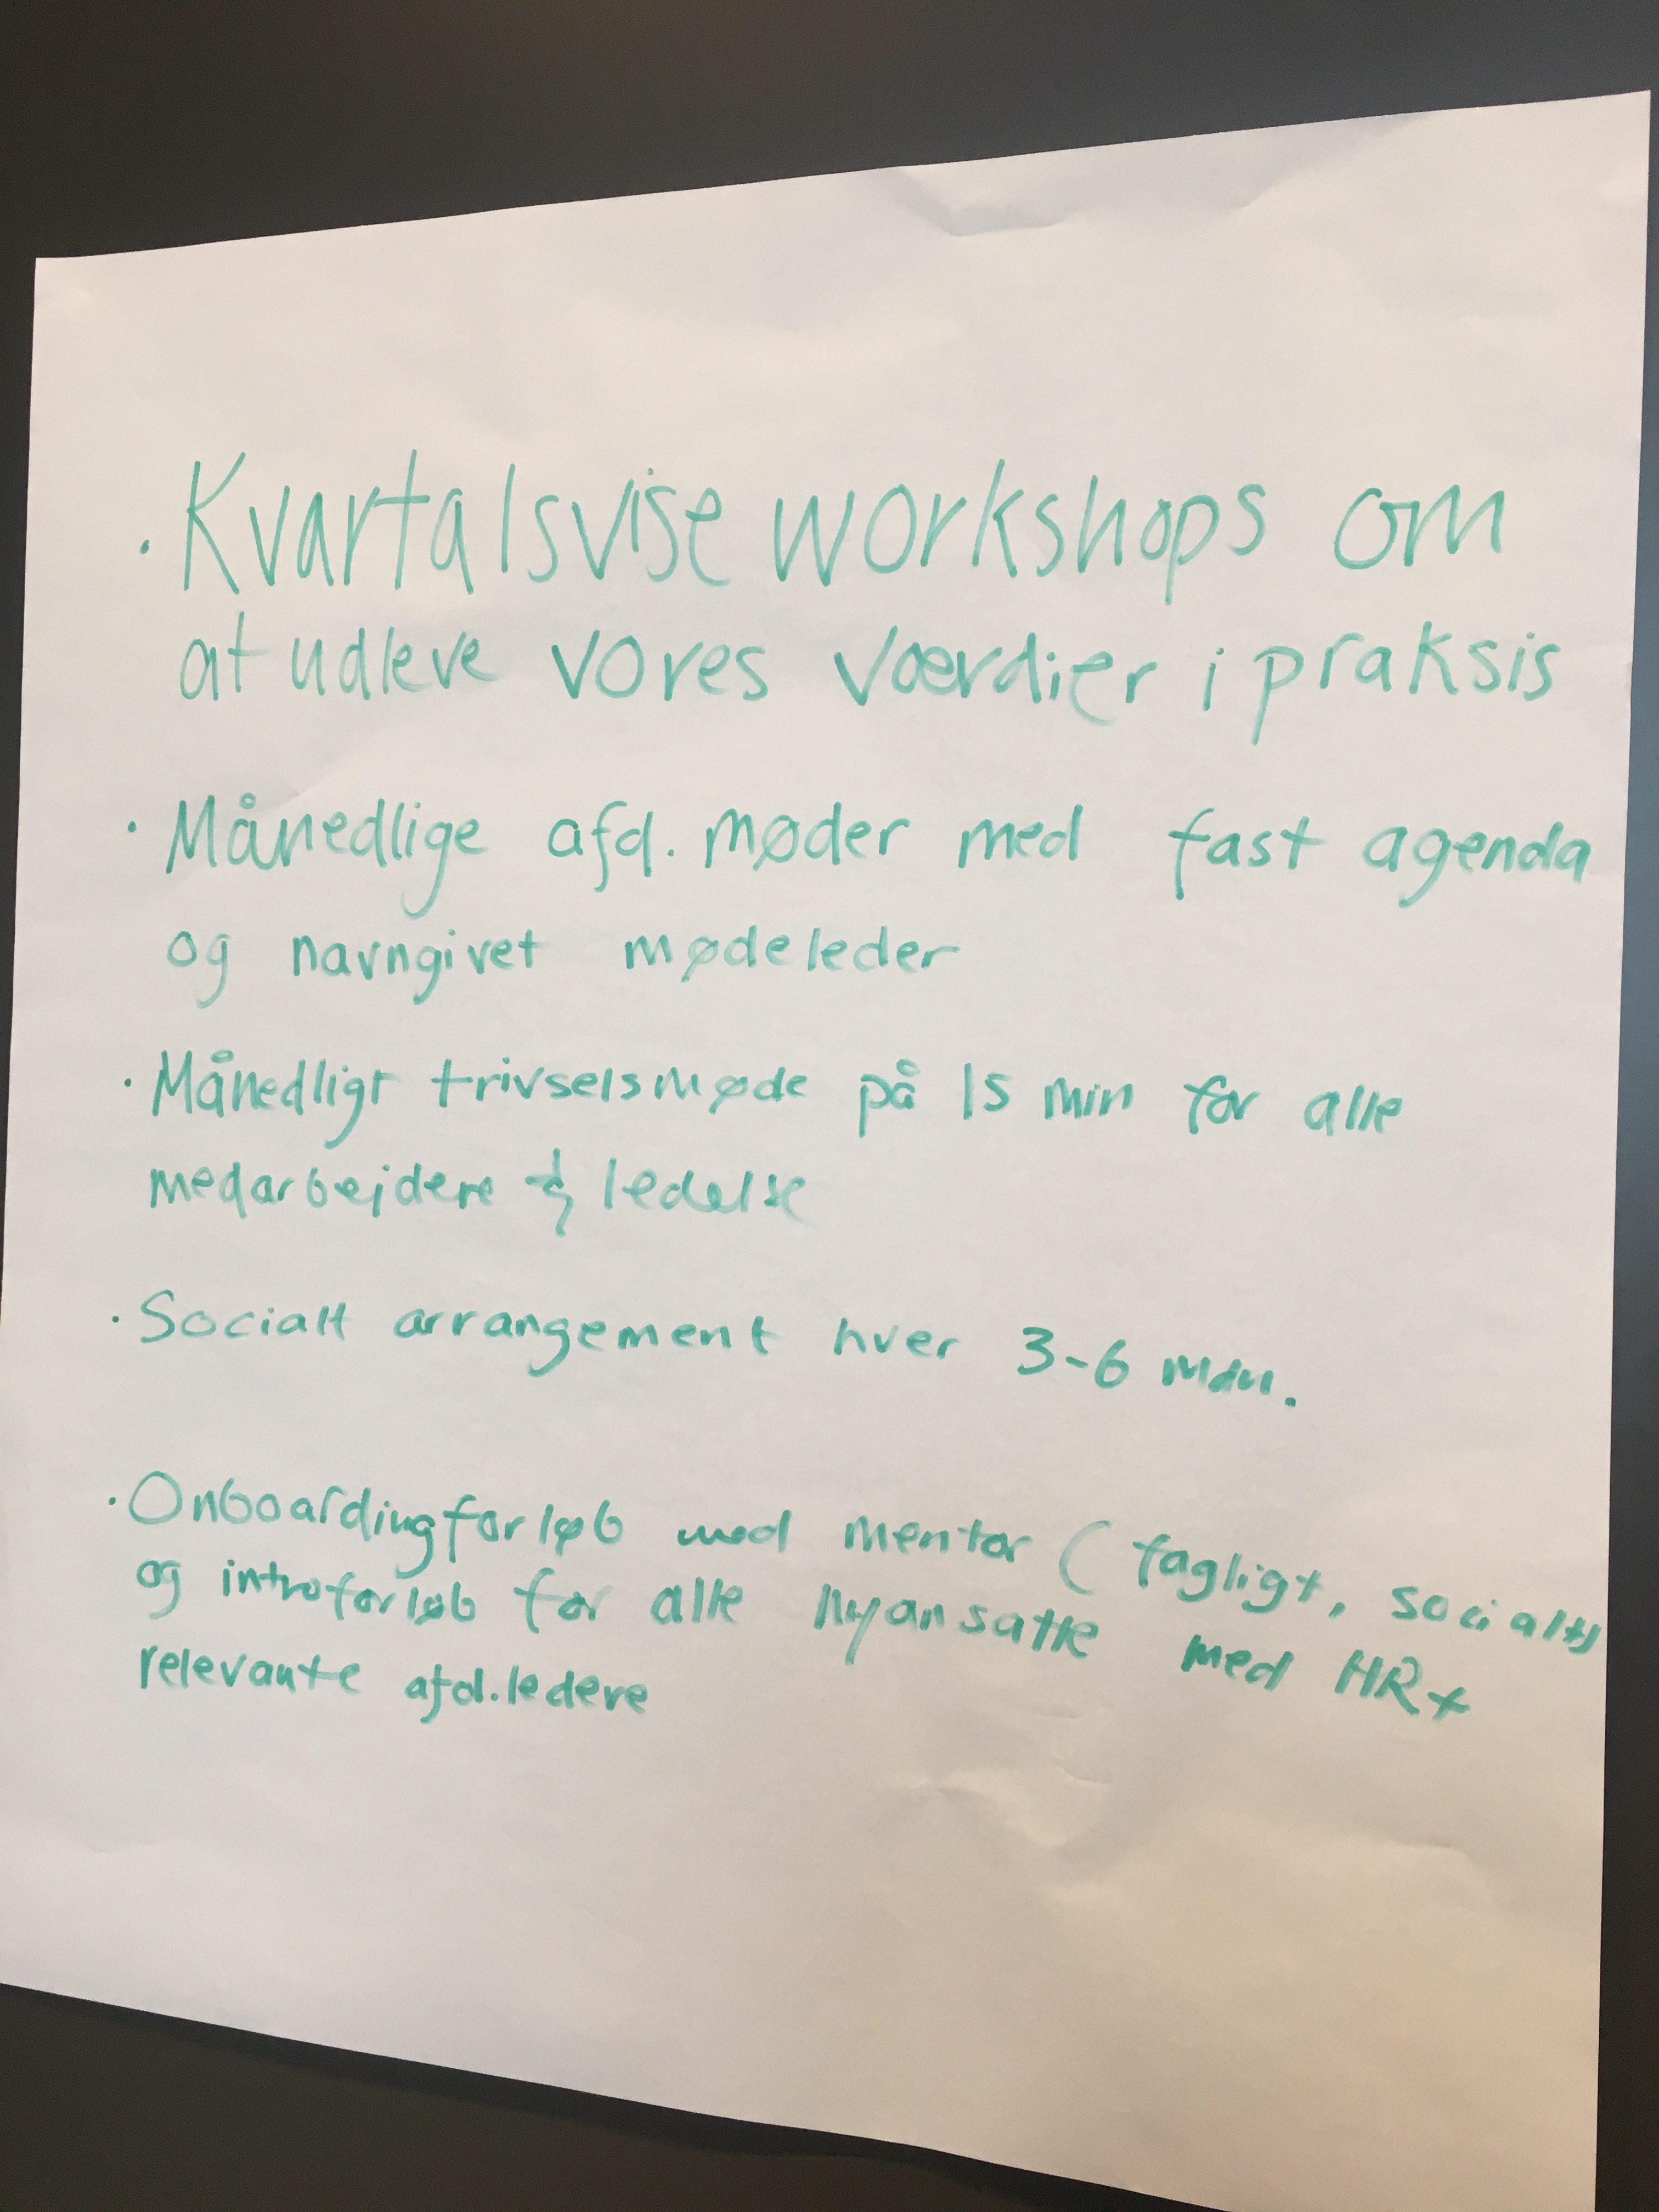 · Kvartalsvise workshops om
at udleve vores værdier i praksis
· Månedlige afd. møder med fast agenda
og navngivet mødeleder
· Månedligt trivselsmøde på 15 min for alle
medarbejdere & ledelse
· Socialt arrangement hver 3-6 mdn.
· Onboardingforløb med mentor (fagligt, socialt)
og introforløb for alle nyansatte med HR +
relevante afd.ledere